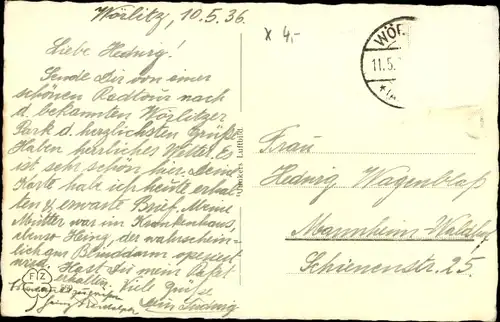 Wörlitz, 10.5.36.
x 4,-
Liebe Hedwig!
Sende Dir von einer
schönen Radtour nach
d. bekannten Wörlitzer
Park d. herzlichsten Grüße
Haben herrliches Wetter. Es
ist sehr schön hier. Deine
Karte habe ich heute erhal-
ten u. erwarte Brief. Meine
Mutter war im Krankenhaus,
ebenso Heinz, der wahrschein-
lich am Blinddarm operiert
wird. Hast Du mein Paket
erhalten. Viele Grüße
Dein Ludwig
FZ
Junkers Luftbild
WÖR
11.5.
Frau
Hedwig Wagenblaß
Mannheim-Waldhof
Schienenstr. 25.